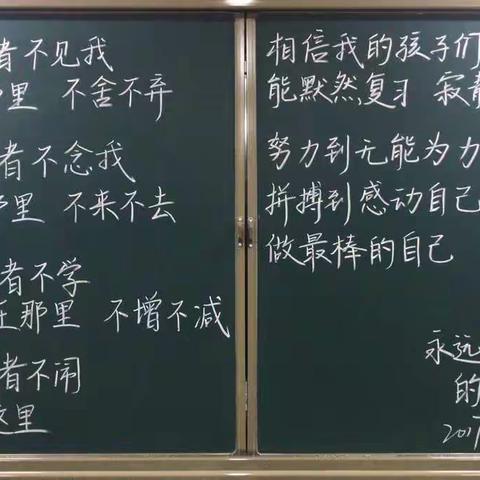 者不见我
那里 不舍不弃
者不念我
那里 不来不去
者不学
在那里 不增不减
者不闹
这里
相信我的孩子们
能默然复习 寂静
努力到无能为力
拼搏到感动自己
做最棒的自己
永远
的
2017